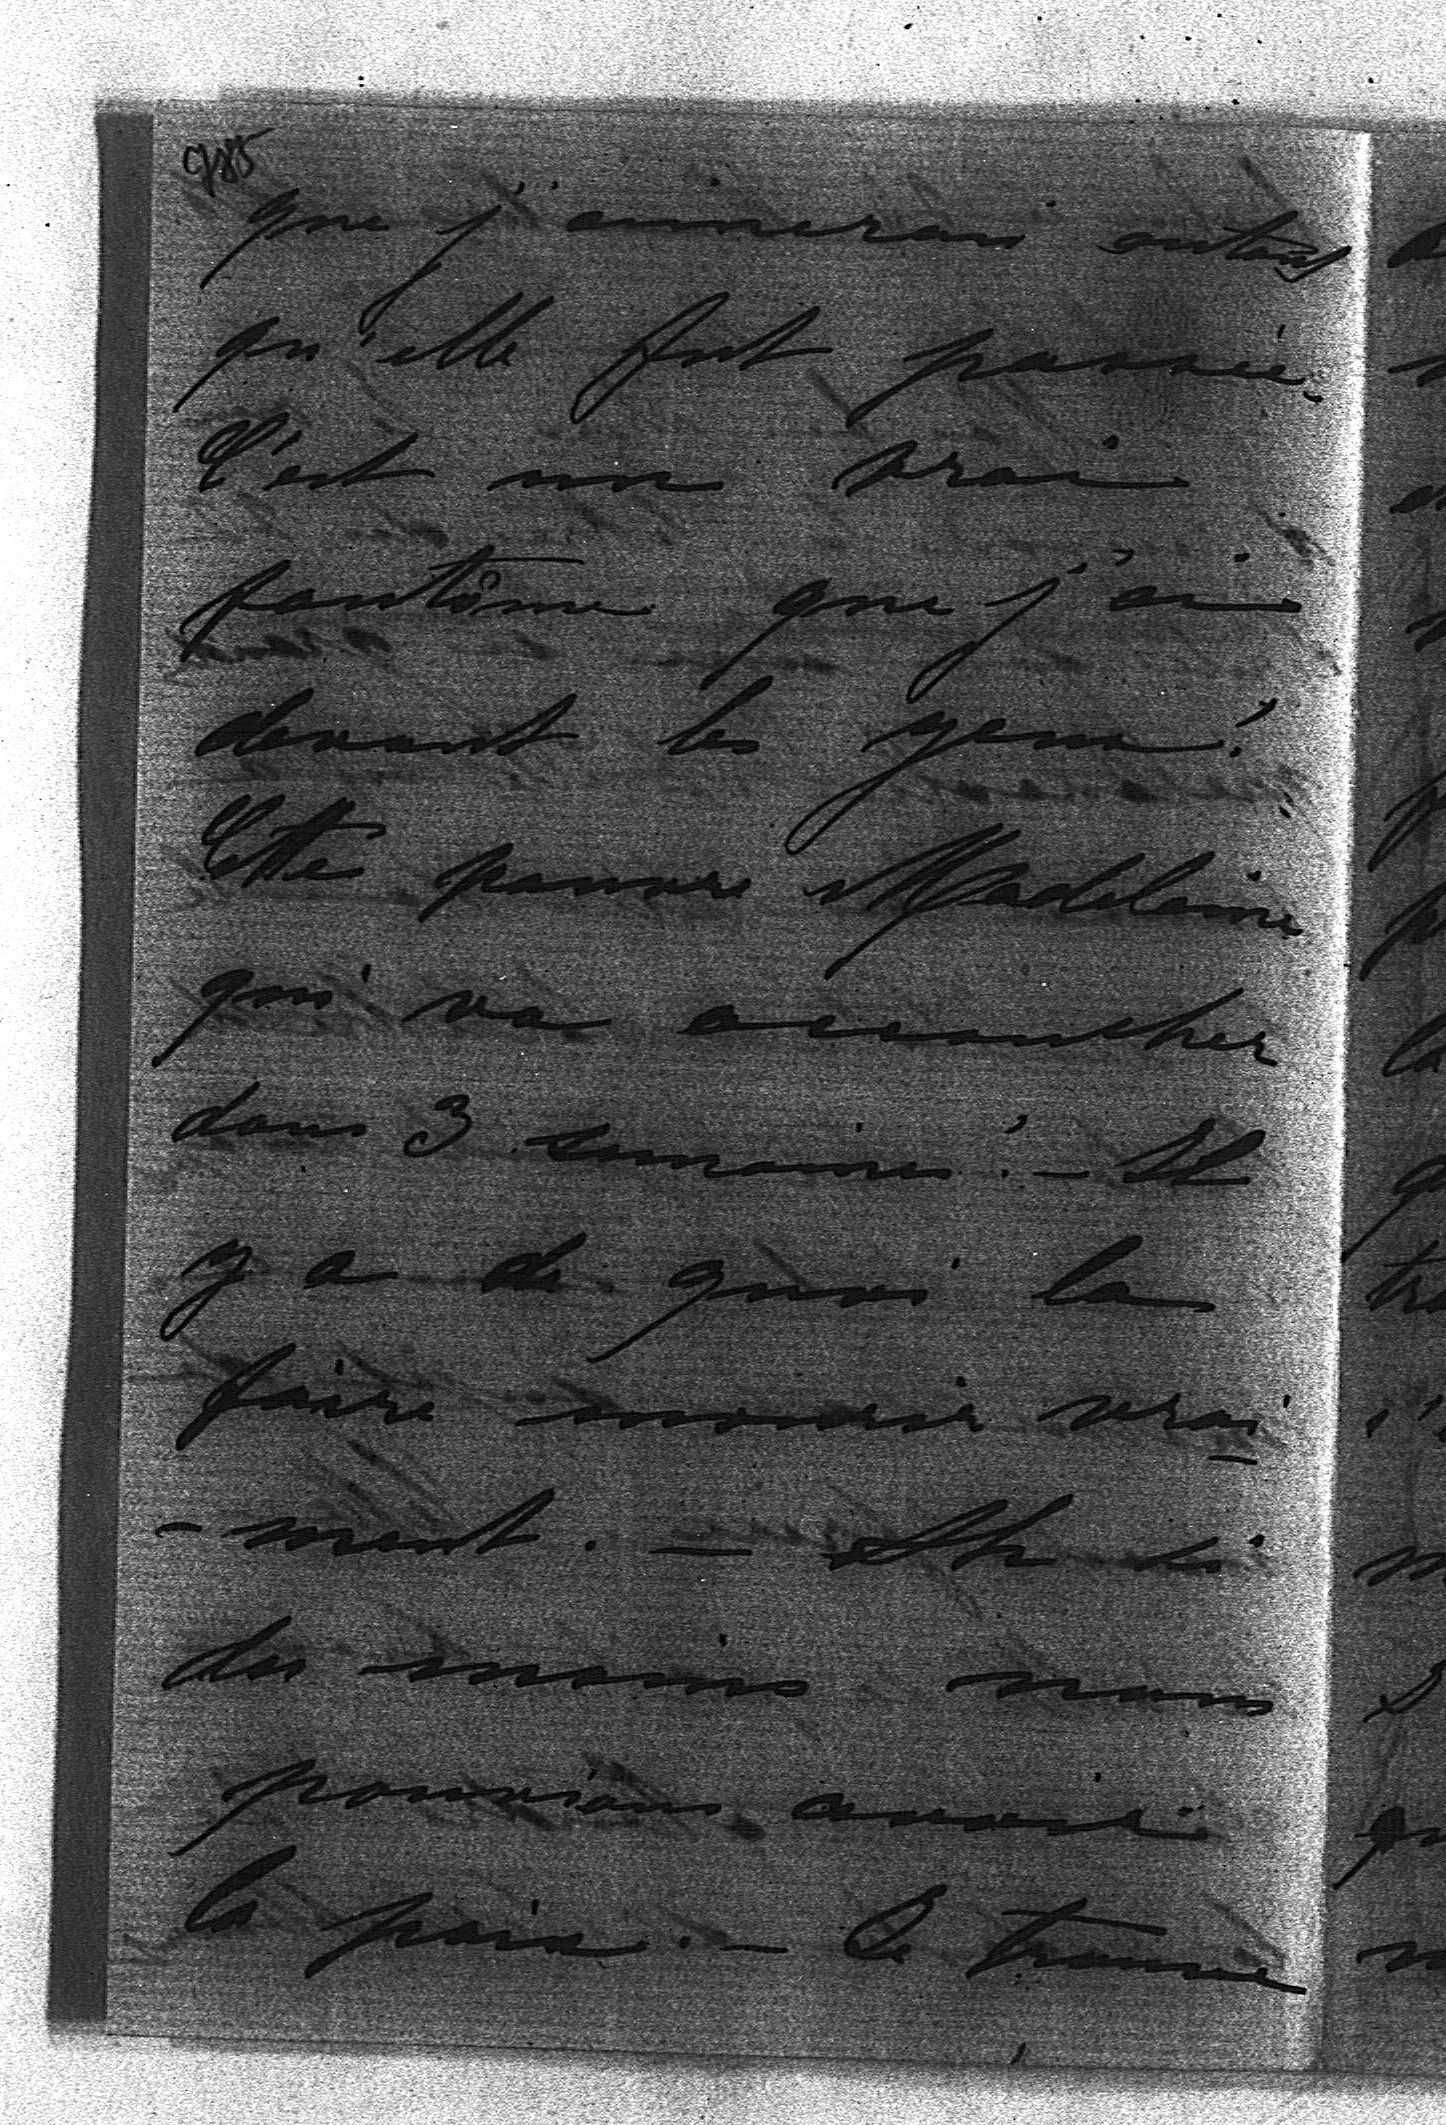 785
que j'aimerais autant
qu'elle fut passée.
C'est un vrai
fantôme que j'ai
devant les yeux!
Cette pauvre Madeleine
qui va accoucher
dans 3 semaines! - Il
y a de quoi la
faire mourir vrai
- ment. - Ah si
du moins nous
pouvions avoir
la paix. - Ce trouve